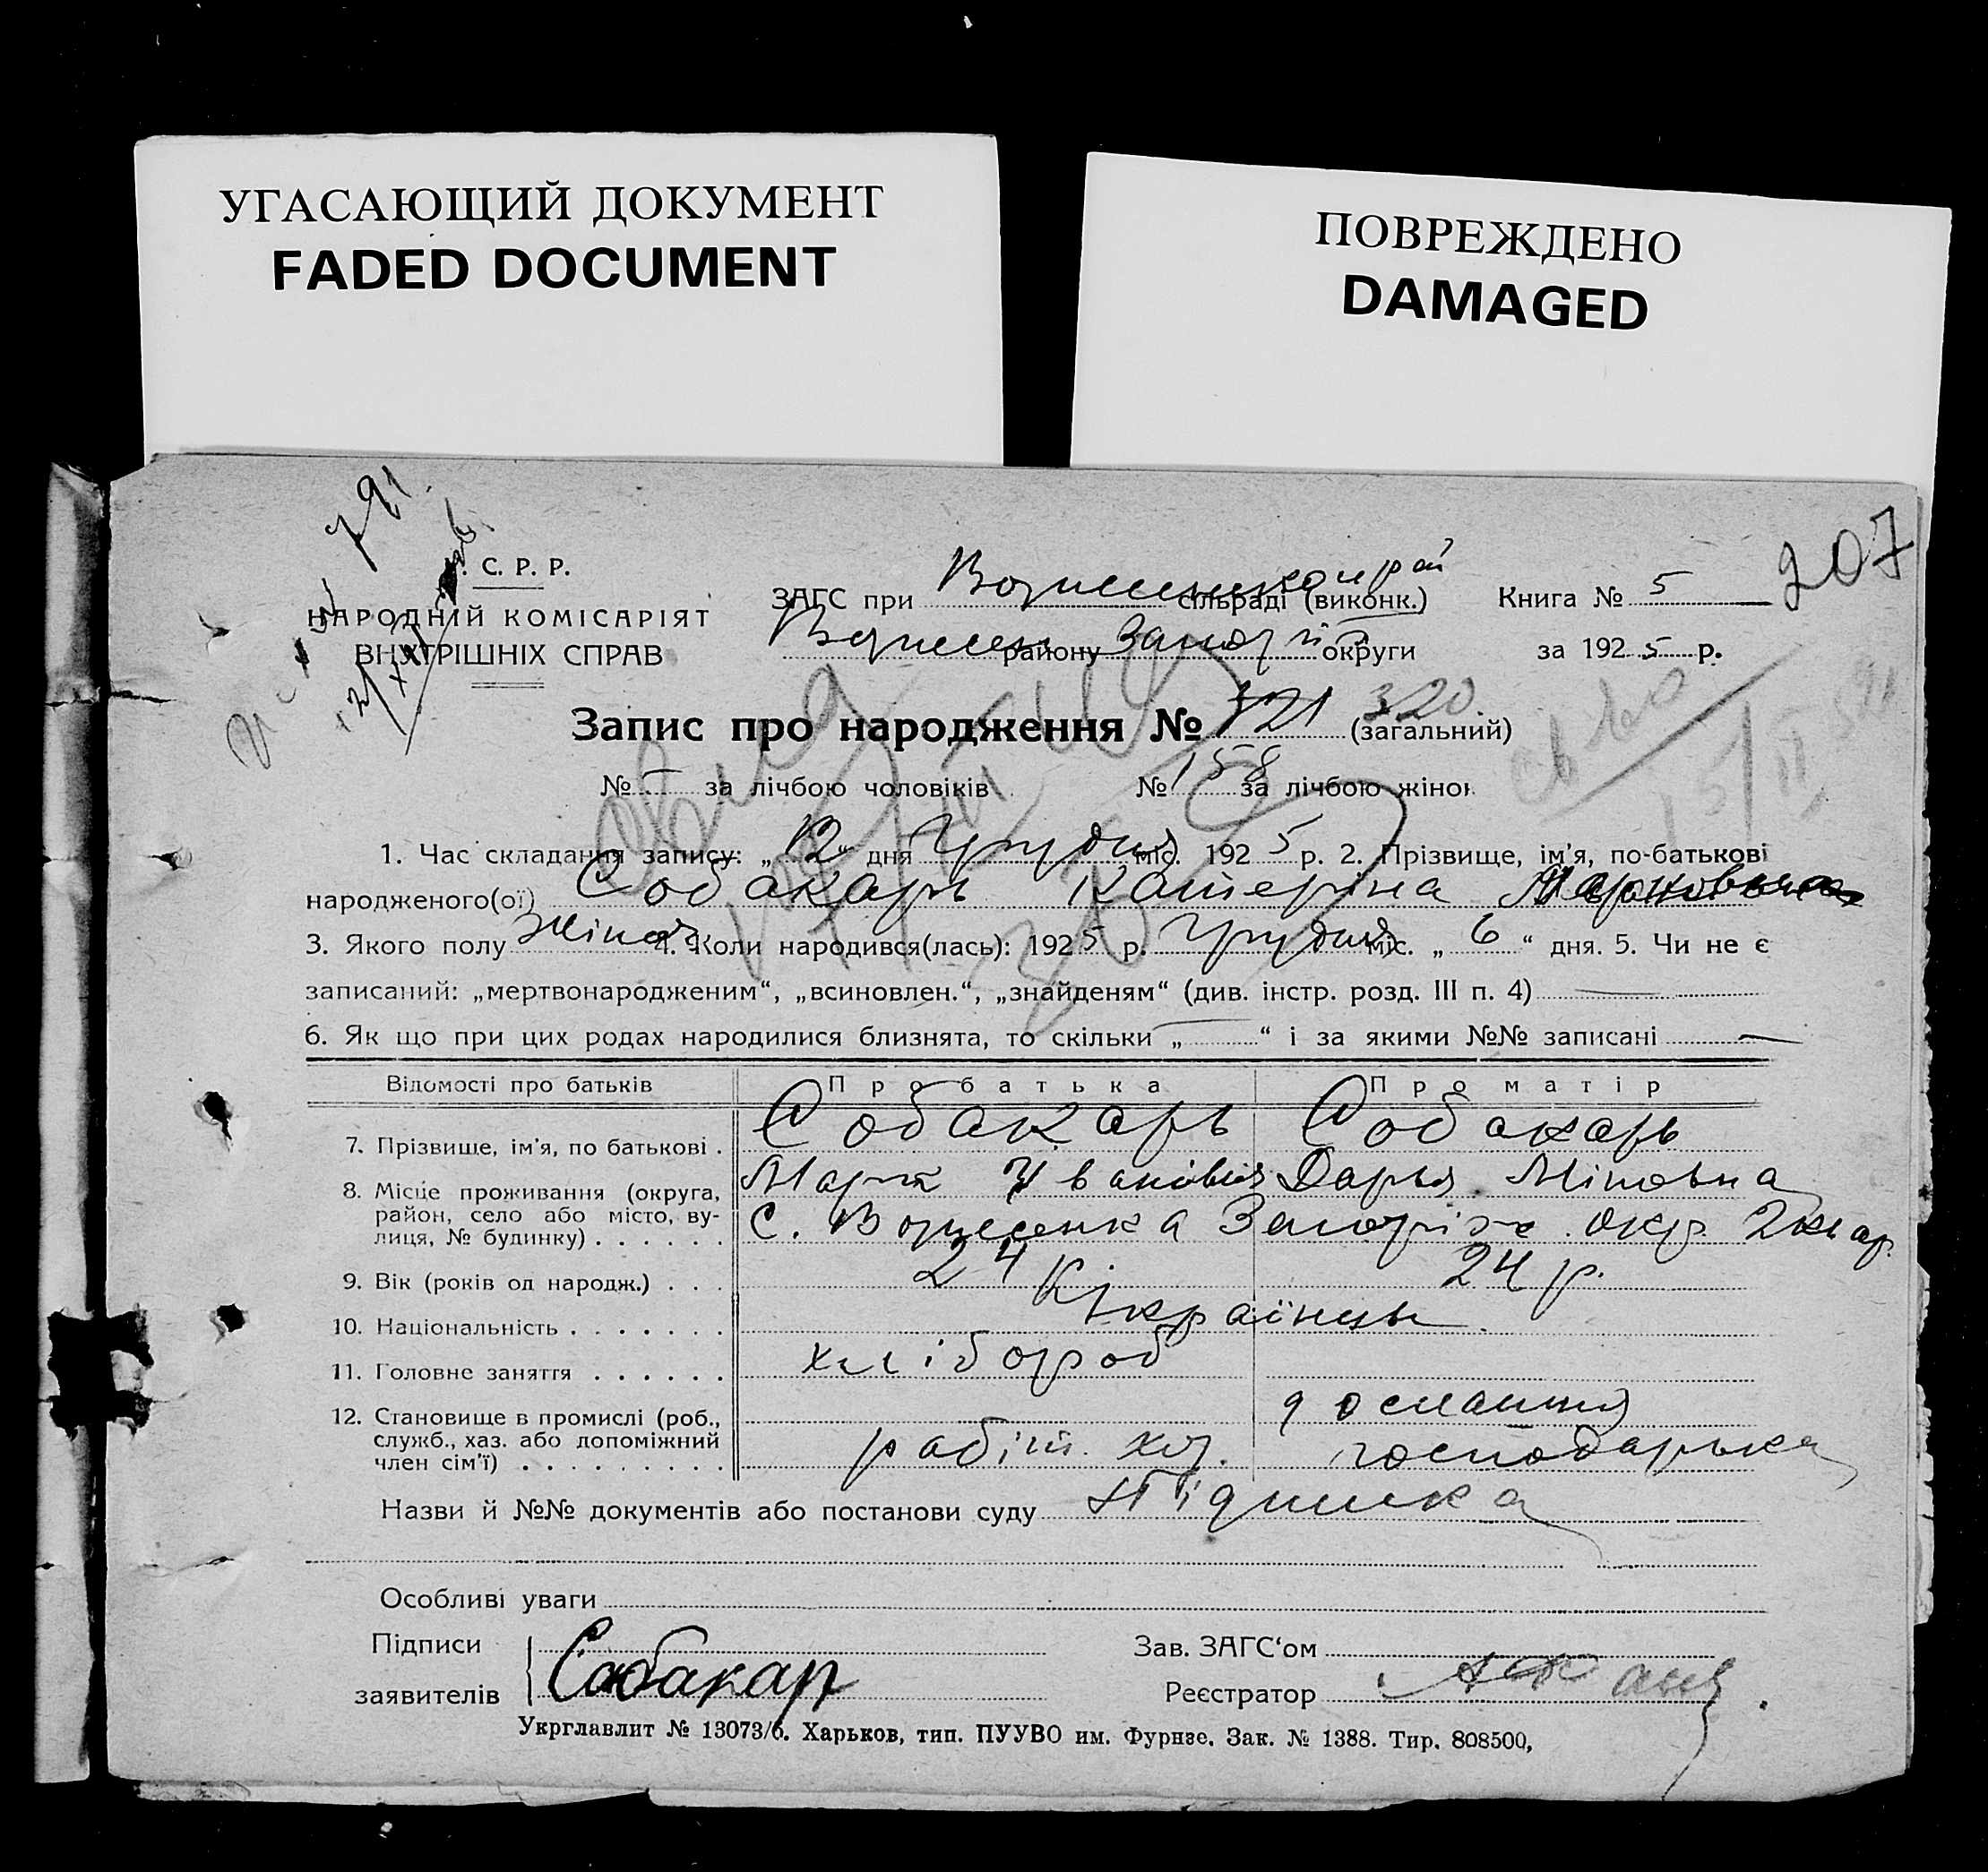 УГАСАЮЩИЙ ДОКУМЕНТ
FADED DOCUMENT
ПОВРЕЖДЕНО
DAMAGED
791
207
. С. Р. Р.
НАРОДНІЙ КОМІСАРІЯТ
ВНУТРІШНІХ СПРАВ
ЗАГС при сільраді (виконк.)
району округи
Книга № 5
за 1925 р.
Запис про народження № 321 320 (загальний)
№ — за лічбою чоловіків № 158 за лічбою жінок
1. Час складання запису: „12“ дня Грудня міс. 1925 р. 2. Прізвище, ім'я, по-батькові
народженого(ої) Собакарь Катеріна
3. Якого полу Жіноч. 4. Коли народився(лась): 1925 р. Грудня міс. „6“ дня. 5. Чи не є
записаний: „мертвонародженим“, „всиновлен.“, „знайденям“ (див. інстр. розд. III п. 4) —
6. Як що при цих родах народилися близнята, то скільки „—“ і за якими №№ записані —
Відомості про батьків Про батька Про матір
7. Прізвище, ім'я, по батькові . Собакарь Собакарь
Марк Дарья Міновна
8. Місце проживання (округа, район, село або місто, вулиця, № будинку) . . . . . . С. Вознесенка Запоріж. окр.
9. Вік (років од народж.) . . . 24 24 р.
10. Національність . . . . . . . Україньці
11. Головне заняття . . . . . . хлібороб
12. Становище в промислі (роб., служб., хаз. або допоміжний член сім'ї) . . . . . . . . . робіт. хоз. домашня
господарька
Назви й №№ документів або постанови суду Підписка
Особливі уваги
Підписи
заявителів Собакар
Зав. ЗАГС‘ом
Реєстратор
Укрглавлит № 13073/б. Харьков, тип. ПУУВО им. Фрунзе. Зак. № 1388. Тир. 808500,